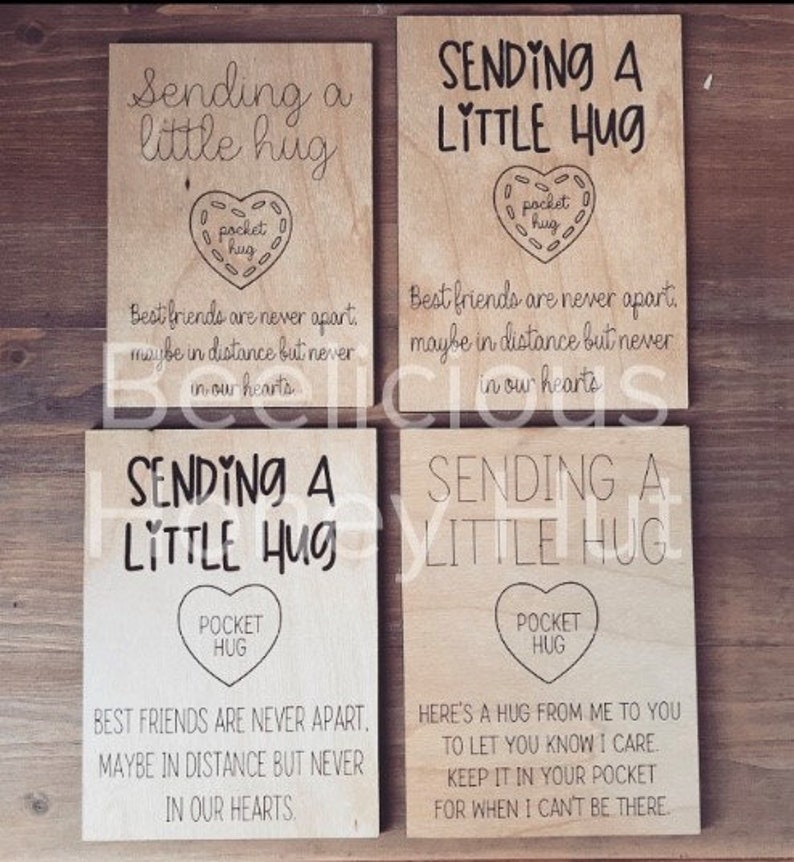 Sending a
little hug
pocket
hug
Best friends are never apart,
maybe in distance but never
in our hearts.
SENDING A
LITTLE HUG
pocket
hug
Best friends are never apart,
maybe in distance but never
in our hearts
SENDING A
LITTLE HUG
POCKET
HUG
BEST FRIENDS ARE NEVER APART,
MAYBE IN DISTANCE BUT NEVER
IN OUR HEARTS.
SENDING A
LITTLE HUG
POCKET
HUG
HERE'S A HUG FROM ME TO YOU
TO LET YOU KNOW I CARE.
KEEP IT IN YOUR POCKET
FOR WHEN I CAN'T BE THERE.
Beelicious
Honey Hut